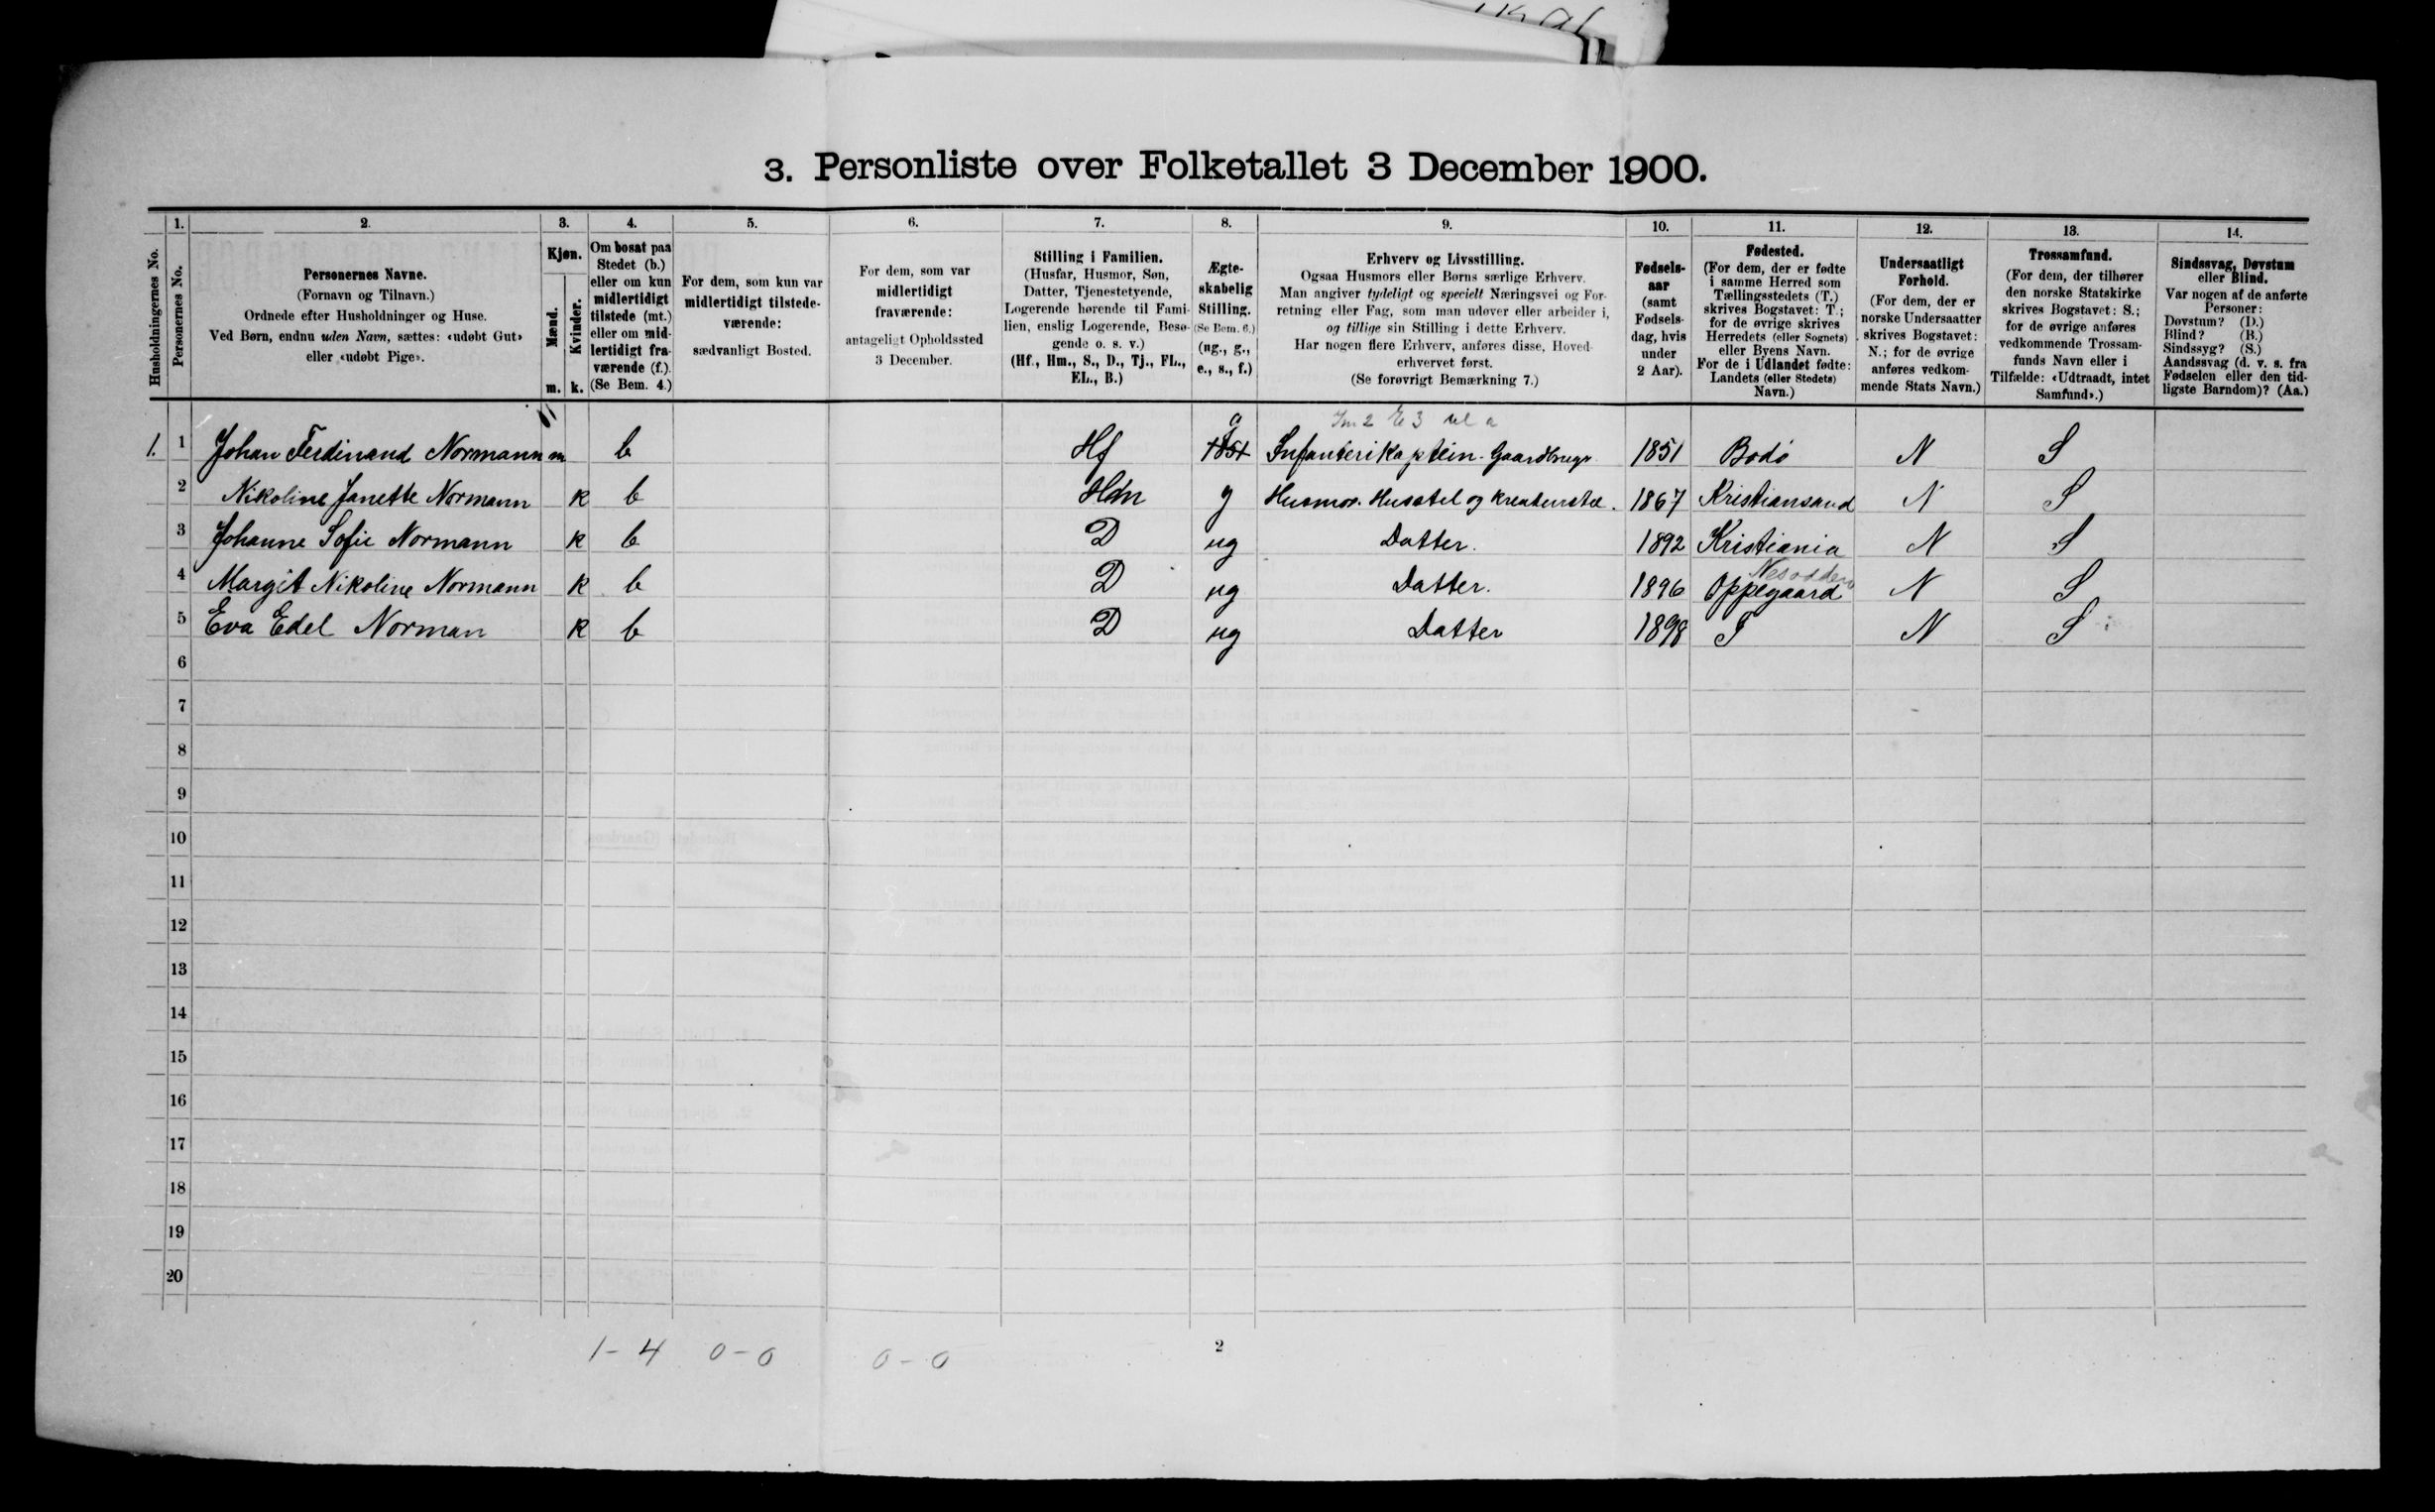 3. Personliste over Folketallet 3 December 1900.
1. 2. 3. 4. 5. 6. 7. 8. 9. 10. 11. 12. 13. 14.
Husholdningernes No.
Personernes No.
Personernes Navne.
(Fornavn og Tilnavn.)
Ordnede efter Husholdninger og Huse.
Ved Børn, endnu uden Navn, sættes: «udøbt Gut»
eller «udøbt Pige».
Kjøn.
Mænd.
Kvinder.
m. k.
Om bosat paa
Stedet (b.)
eller om kun
midlertidigt
tilstede (mt.)
eller om mid-
lertidigt fra-
værende (f.).
(Se Bem. 4.)
For dem, som kun var
midlertidigt tilstede-
værende:
sædvanligt Bosted.
For dem, som var
midlertidigt
fraværende:
antageligt Opholdssted
3 December.
Stilling i Familien.
(Husfar, Husmor, Søn,
Datter, Tjenestetyende,
Logerende hørende til Fami-
lien, enslig Logerende, Besø-
gende o. s. v.)
(Hf., Hm., S., D., Tj., FL.,
EL., B.)
Ægte-
skabelig
Stilling.
(Se Bem. 6.)
(ug., g.,
e., s., f.)
Erhverv og Livsstilling.
Ogsaa Husmors eller Børns særlige Erhverv.
Man angiver tydeligt og specielt Næringsvei og For-
retning eller Fag, som man udøver eller arbeider i,
og tillige sin Stilling i dette Erhverv.
Har nogen flere Erhverv, anføres disse, Hoved-
erhvervet først.
(Se forøvrigt Bemærkning 7.)
Fødsels-
aar
(samt
Fødsels-
dag, hvis
under
2 Aar).
Fødested.
(For dem, der er fødte
i samme Herred som
Tællingsstedets (T.)
skrives Bogstavet: T.;
for de øvrige skrives
Herredets (eller Sognets)
eller Byens Navn.
For de i Udlandet fødte:
Landets (eller Stedets)
Navn.)
Undersaatligt
Forhold.
(For dem, der er
norske Undersaatter
skrives Bogstavet:
N.; for de øvrige
anføres vedkom-
mende Stats Navn.)
Trossamfund.
(For dem, der tilhører
den norske Statskirke
skrives Bogstavet: S.;
for de øvrige anføres
vedkommende Trossam-
funds Navn eller i
Tilfælde: «Udtraadt, intet
Samfund».)
Sindssvag, Døvstum
eller Blind.
Var nogen af de anførte
Personer:
Døvstum? (D.)
Blind? (B.)
Sindssyg? (S.)
Aandssvag (d. v. s. fra
Fødselen eller den tid-
ligste Barndom)? (Aa.)
1. 1 Johan Ferdinand Normann m b Hf 1851 g Infanterikaptein. Gaardbruger 1851 Bodø N S
2 Nikoline Janette Normann k b Hm g Husmor. Husstel og kreaturstel. 1867 Kristiansand N S
3 Johanne Sofie Normann k b D ug Datter. 1892 Kristiania N S
4 Margit Nikoline Normann k b D ug Datter. 1896 Oppegaard Nesodden N S
5 Eva Edel Norman k b D ug Datter 1898 T N S
6
7
8
9
10
11
12
13
14
15
16
17
18
19
20
1-4 0-0 0-0
2